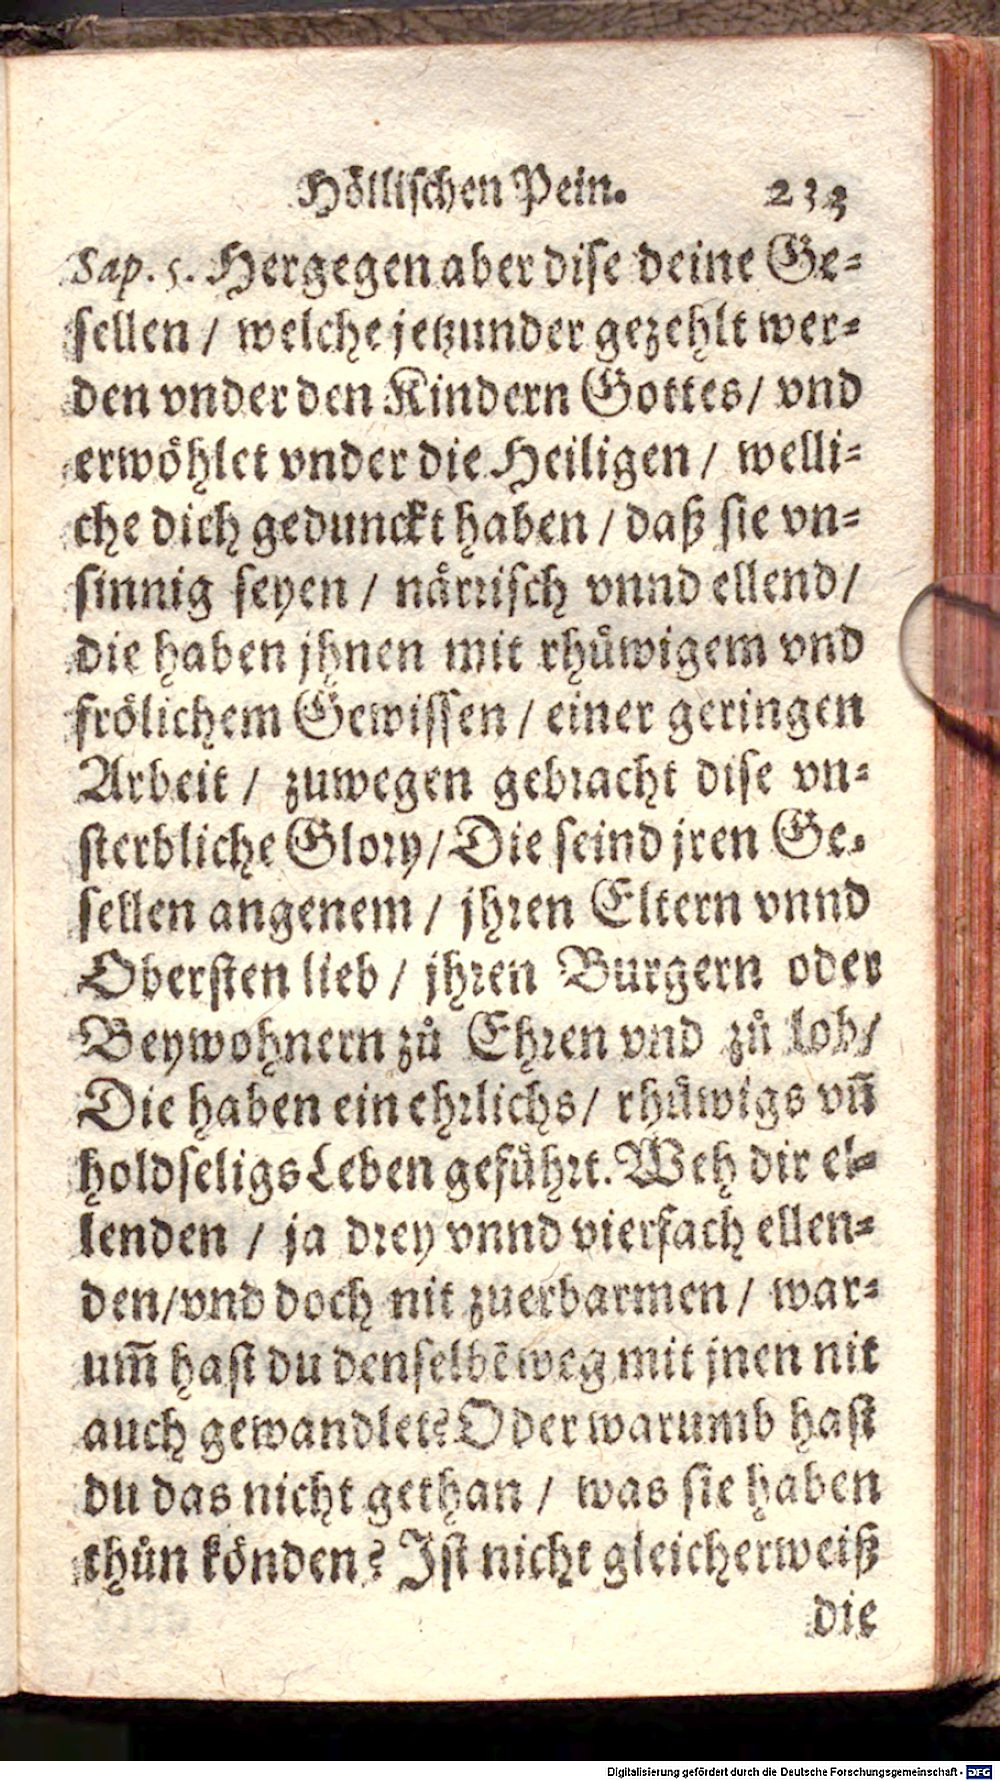 Höllischen Pein. 233
Sap. 5. Hergegen aber dise deine Ge-
sellen / welche jetzunder gezehlt wer-
den vnder den Kindern Gottes / vnd
erwöhlet vnder die Heiligen / welli-
che dich gedunckt haben / daß sie vn-
sinnig seyen / närrisch vnnd ellend /
die haben jhnen mit rhüwigem vnd
frölichem Gewissen / einer geringen
Arbeit / zuwegen gebracht dise vn-
sterbliche Glory / Die seind jren Ge-
sellen angenem / jhren Eltern vnnd
Obersten lieb / jhren Burgern oder
Beywohnern zů Ehren vnd zů Lob /
Die haben ein ehrlichs / rhüwigs vñ
holdseligs Leben geführt. Weh dir el-
lenden / ja drey vnnd vierfach ellen-
den / vnd doch nit zuerbarmen / war-
um̃ hast du denselbẽ weg mit jnen nit
auch gewandlet? Oder warumb hast
du das nicht gethan / was sie haben
thůn könden? Ist nicht gleicherweiß
die
Digitalisierung gefördert durch die Deutsche Forschungsgemeinschaft - DFG